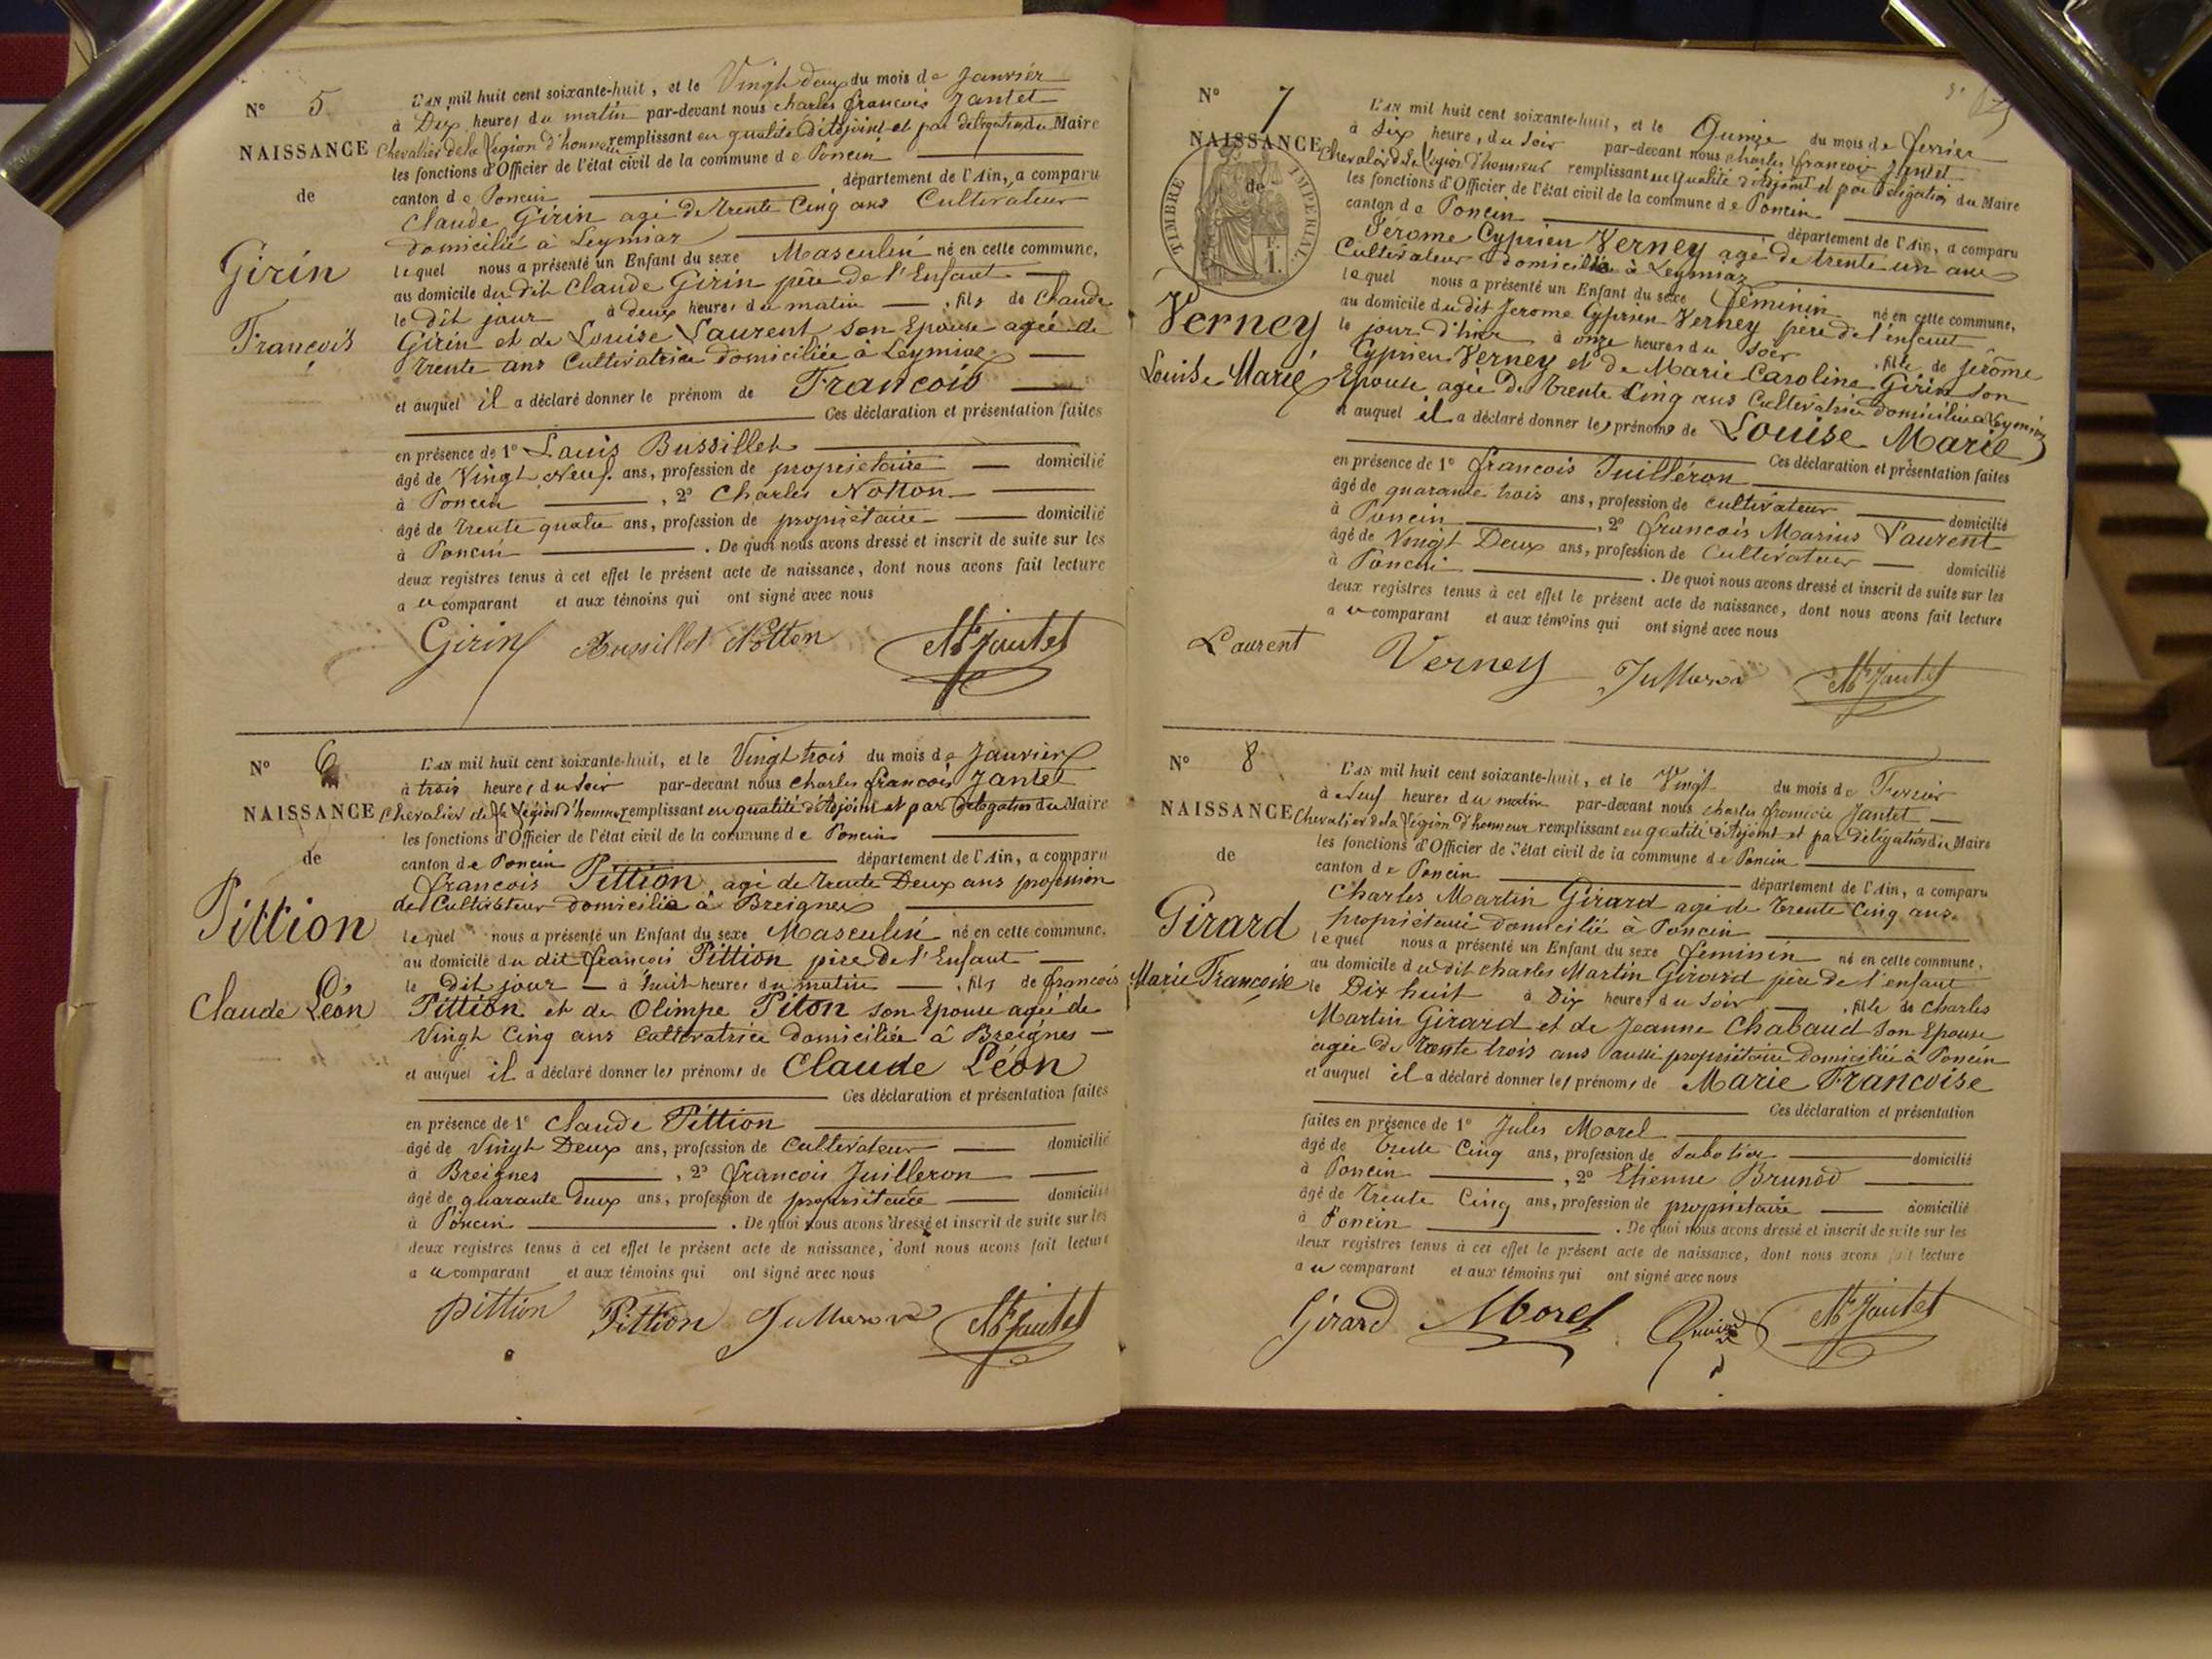 N° 5
NAISSANCE
de
Girin
François
L'AN mil huit cent soixante-huit, et le Vingt deux du mois de Janvier
à Dix heures du matin par-devant nous charles françois Jantet
Chevalier de la Légion d'honneur remplissant en qualité d'Adjoint et par délégation du Maire
les fonctions d'Officier de l'état civil de la commune de Poncin
canton de Poncin département de l'Ain, a comparu
Claude Girin agé de trente Cinq ans Cultivateur
domicilié à Leymiaz
lequel nous a présenté un Enfant du sexe Masculin né en cette commune,
au domicile du dit Claude Girin père de l'Enfant
le dit jour à deux heures du matin, fils de Claude
Girin et de Louise Laurent son Epouse agée de
trente ans Cultivatrice domiciliée à Leymiaz
et auquel il a déclaré donner le prénom de Francois
Ces déclaration et présentation faites
en présence de 1° Louis Bussillet
âgé de Vingt Neuf ans, profession de propriétaire domicilié
à Poncin, 2° Charles Notton
âgé de trente quatre ans, profession de propriétaire domicilié
à Poncin. De quoi nous avons dressé et inscrit de suite sur les
deux registres tenus à cet effet le présent acte de naissance, dont nous avons fait lecture
au comparant et aux témoins qui ont signé avec nous
Girin Bussillet Notton Jantet
N° 6
NAISSANCE
de
Pittion
Claude Léon
L'AN mil huit cent soixante-huit, et le Vingt trois du mois de Janvier
à trois heures du soir par-devant nous charles françois Jantet
Chevalier de la Légion d'honneur remplissant en qualité d'Adjoint et par délégation du Maire
les fonctions d'Officier de l'état civil de la commune de Poncin
canton de Poncin département de l'Ain, a comparu
françois Pittion agé de trente Deux ans profession
de Cultivateur domicilié à Breignes
lequel nous a présenté un Enfant du sexe Masculin né en cette commune,
au domicile du dit françois Pittion père de l'Enfant
le dit jour à huit heures du matin, fils de françois
Pittion et de Olimpe Piton son Epouse agée de
Vingt Cinq ans Cultivatrice domiciliée à Breignes
et auquel il a déclaré donner les prénoms de Claude Léon
Ces déclaration et présentation faites
en présence de 1° Claude Pittion
âgé de Vingt Deux ans, profession de Cultivateur domicilié
à Breignes, 2° françois Juilleron
âgé de quarante deux ans, profession de propriétaire domicilié
à Poncin. De quoi nous avons dressé et inscrit de suite sur les
deux registres tenus à cet effet le présent acte de naissance, dont nous avons fait lecture
au comparant et aux témoins qui ont signé avec nous
Pittion Pittion Juilleron Jantet
N° 7
NAISSANCE
de
TIMBRE IMPERIAL
Verney
Louise Marie
L'AN mil huit cent soixante-huit, et le Quinze du mois de fevrier
à six heures du soir par-devant nous charles françois Jantet
Chevalier de la Légion d'honneur remplissant en qualité d'Adjoint et par délégation du Maire
les fonctions d'Officier de l'état civil de la commune de Poncin
canton de Poncin département de l'Ain, a comparu
Jérome Cyprien Verney agé de trente un ans
Cultivateur domicilié à Leymiaz
lequel nous a présenté un Enfant du sexe féminin né en cette commune,
au domicile du dit Jerome Cyprien Verney père de l'enfant
le jour d'hier à onze heures du soir, fille de Jerôme
Cyprien Verney et de Marie Caroline Girin son
Epouse agée de trente Cinq ans Cultivatrice domiciliée à Leymiaz
et auquel il a déclaré donner les prénoms de Louise Marie
Ces déclaration et présentation faites
en présence de 1° françois Juilléron
âgé de quarante trois ans, profession de cultivateur domicilié
à Poncin, 2° françois Marius Laurent
âgé de Vingt Deux ans, profession de Cultivateur domicilié
à Poncin. De quoi nous avons dressé et inscrit de suite sur les
deux registres tenus à cet effet le présent acte de naissance, dont nous avons fait lecture
au comparant et aux témoins qui ont signé avec nous
Laurent Verney Juilleron Jantet
N° 8
NAISSANCE
de
Girard
Marie Françoise
L'AN mil huit cent soixante-huit, et le Vingt du mois de Fevrier
à Neuf heures du matin par-devant nous charles françois Jantet
Chevalier de la Légion d'honneur remplissant en qualité d'Adjoint et par délégation du Maire
les fonctions d'Officier de l'état civil de la commune de Poncin
canton de Poncin département de l'Ain, a comparu
Charles Martin Girard agé de trente Cinq ans
propriétaire domicilié à Poncin
lequel nous a présenté un Enfant du sexe féminin né en cette commune,
au domicile du dit charles Martin Girard père de l'enfant
le Dix huit à Dix heures du soir, fille de Charles
Martin Girard et de Jeanne Chabaud son Epouse
agée de trente trois ans aussi propriétaire domiciliée à Poncin
et auquel il a déclaré donner les prénoms de Marie Francoise
Ces déclaration et présentation
faites en présence de 1° Jules Morel
âgé de trente Cinq ans, profession de Sabotier domicilié
à Poncin, 2° Etienne Brunod
âgé de trente Cinq ans, profession de propriétaire domicilié
à Poncin. De quoi nous avons dressé et inscrit de suite sur les
deux registres tenus à cet effet le présent acte de naissance, dont nous avons fait lecture
au comparant et aux témoins qui ont signé avec nous
Girard Morel Jantet